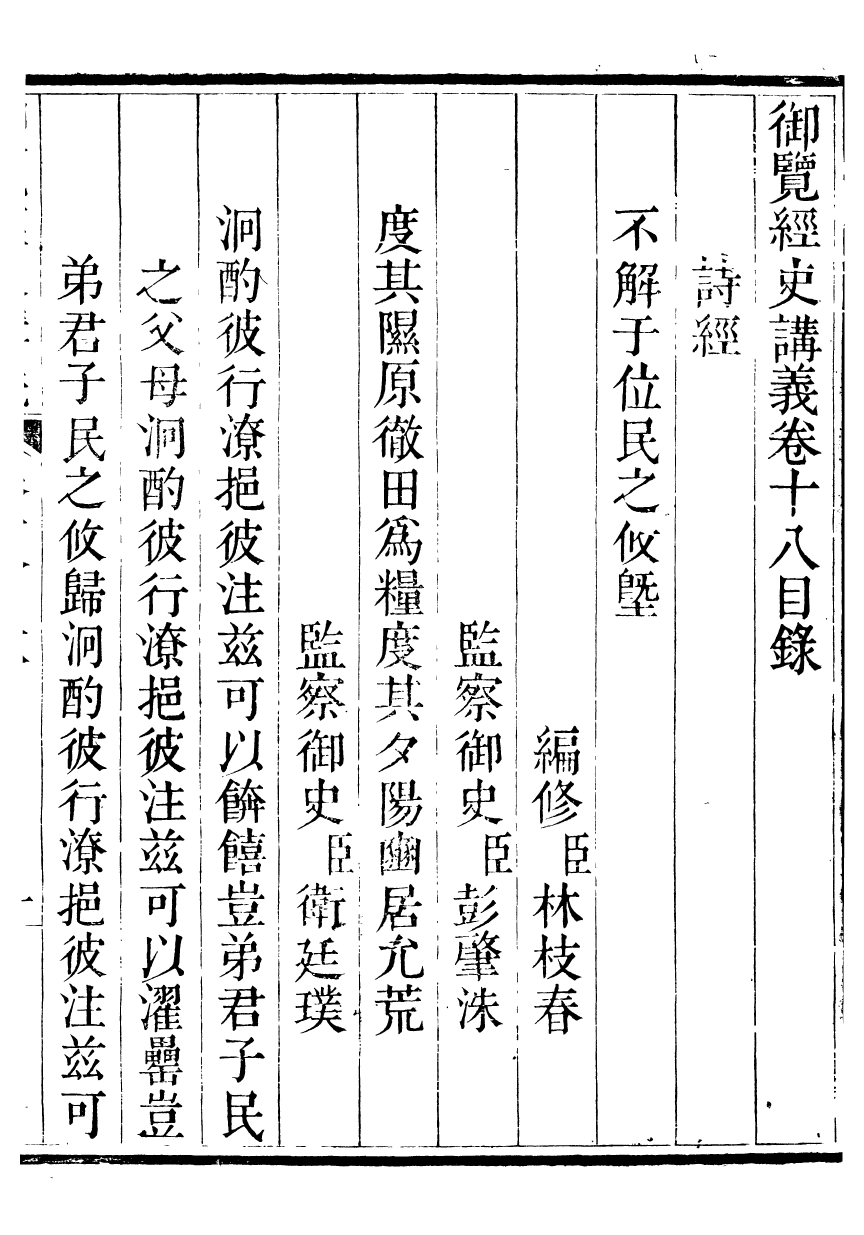 御覽經史講義卷十八目錄
詩經
不解于位民之攸塈
編修臣林枝春
監察御史臣彭肇洙
度其隰原徹田爲糧度其夕陽豳居允荒
監察御史臣衛廷璞
泂酌彼行潦挹彼注茲可以餴饎豈弟君子民
之父母泂酌彼行潦挹彼注茲可以濯罍豈
弟君子民之攸歸泂酌彼行潦挹彼注茲可